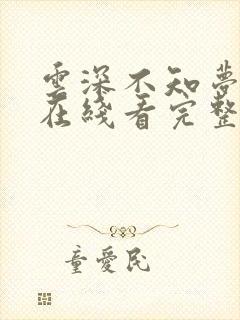 雲深不知夢
在綫看完整
童愛民